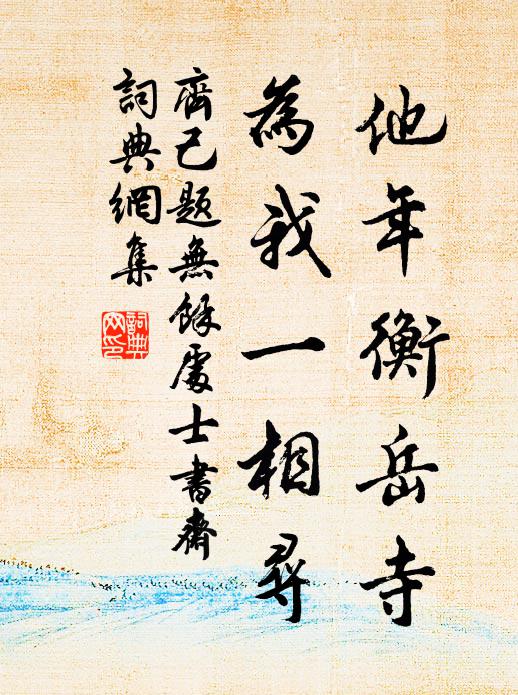 他年衡岳寺
為我一相尋
齊己題無餘處士書齋
詞典網集
詞典
网印